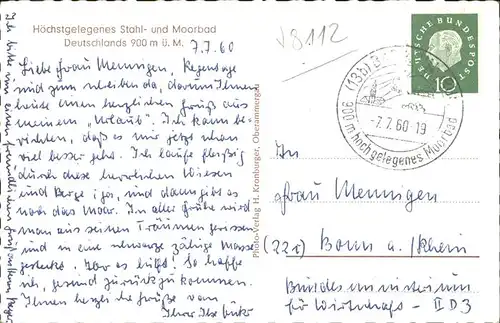 Höchstgelegenes Stahl- und Moorbad
Deutschlands 900 m ü. M.
7.7.60
V8112
Liebe Frau Mennigen, Regentage
sind zum schreiben da, darum Ihnen
heute einen herzlichen Gruß aus
meinem "Urlaub". Ich kann be-
richten, daß es mir jetzt schon
viel besser geht. Ich laufe fleißig
durch diese herrlichen Wiesen
und Berge, und dann gibt es
noch das Moor. In aller Frühe wird
man aus seinen Träumen gerissen
und in eine schwarze zähe Masse
gesteckt. Aber es hilft! So hoffe
ich, gesund zurückzukommen.
Ihnen herzliche Grüße von
Ihrer
Photo-Verlag H. Kronburger, Oberammergau
DEUTSCHE BUNDESPOST
10
(13b)
-7.7.60-19
900 m hochgelegenes Moorbad
In
Frau Mennigen
(22c) Bonn a./Rhein
Bundesministerium
für Wirtschaft - II D3